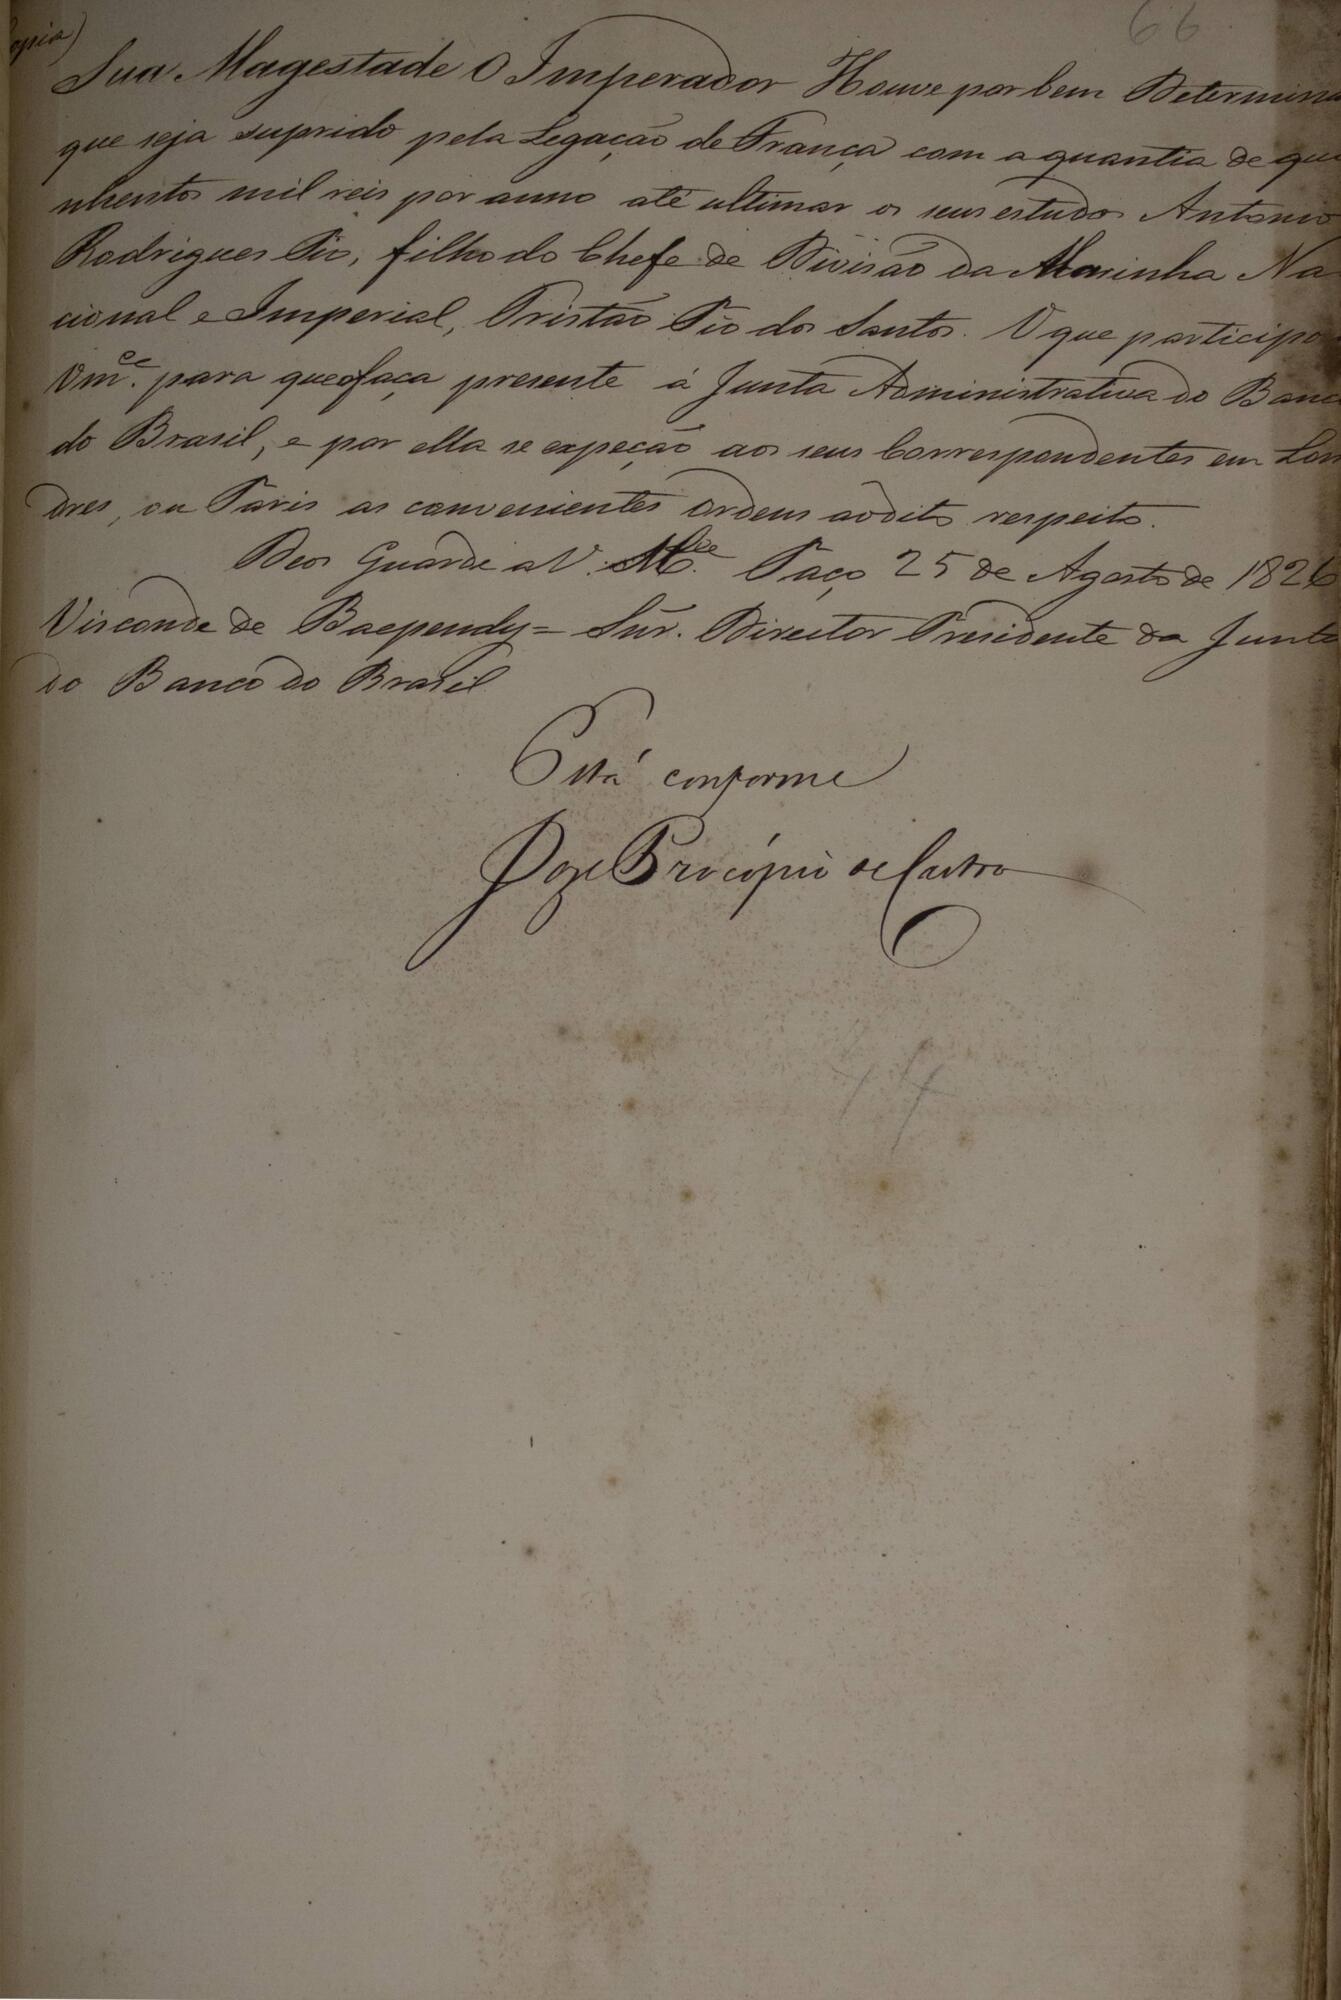 66
opia)
Sua Magestade O Imperador Houve por bem Determina
que seja suprido pela Legação de França com a quantia de qui
nhentos mil reis por anno até ultimar os seus estudos Antonio
Rodrigues Pio, filho do Chefe de Divisão da Marinha Na
cional e Imperial, Tristão Pio dos Santos. O que participo
Vm.ce para que o faça presente á Junta Administrativa do Banc
do Brasil, e por ella se expeção aos seus Correspondentes em Lon
dres, ou Paris as convenientes Ordens ao dito respeito.
Deos Guarde a V. M.ce Paço 25 de Agosto de 1826
Visconde de Baependy = Snr. Director Presidente da Junta
do Banco do Brasil
Está conforme
Joze Procópio de Castro
44